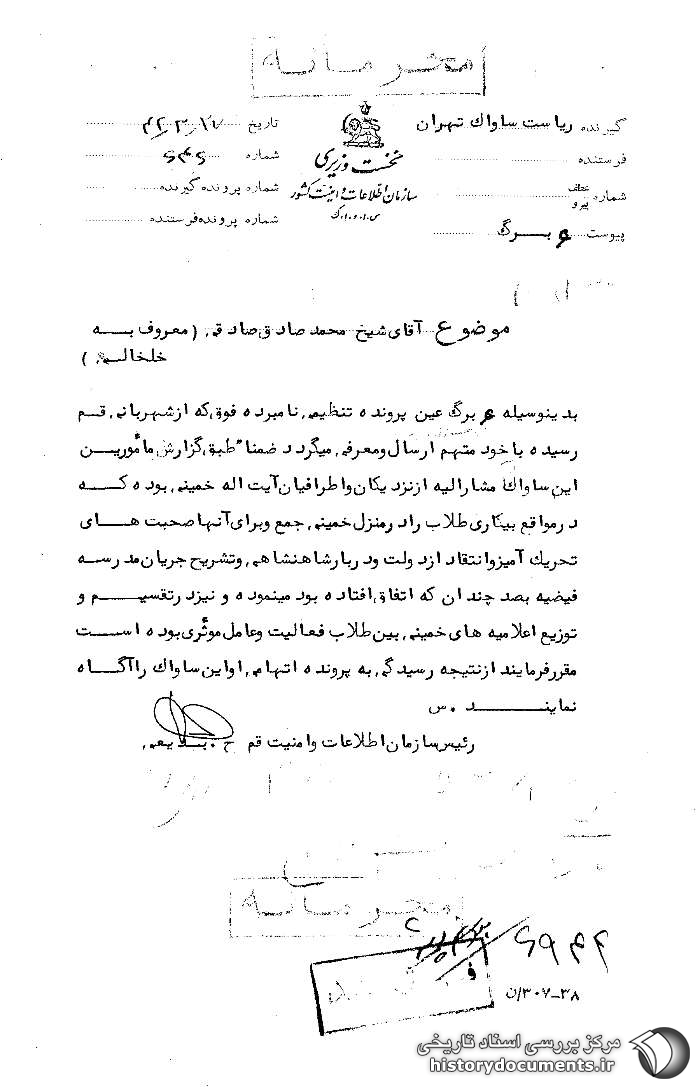 محرمانه
گیرنده ریاست ساواك تهران
فرستنده
شماره عطف پیرو
پیوست ۶ برگ
نخست وزیری
سازمان اطلاعات و امنیت کشور
س.ا.و.ا.ک
تاریخ
شماره
شماره پرونده گیرنده
شماره پرونده فرستنده
موضوع آقای شیخ محمد صادق صادقی (معروف به
خلخالی)
بدینوسیله ۶ برگ عین پرونده تنظیمی نامبرده فوق که از شهربانی قم
رسیده با خود متهم ارسال و معرفی میگردد ضمنا" طبق گزارش مأمورین
این ساواك مشارالیه از نزدیکان و اطرافیان آیت اله خمینی بوده که
در مواقع بیکاری طلاب را در منزل خمینی جمع و برای آنها صحبت های
تحریك آمیز و انتقاد از دولت و دربار شاهنشاهی و تشریح جریان مدرسه
فیضیه بصد چندان که اتفاق افتاده بود مینموده و نیز در تقسیم و
توزیع اعلامیه های خمینی بین طلاب فعالیت و عامل موثری بوده است
مقرر فرمایند از نتیجه رسیدگی به پرونده اتهامی او این ساواك را آگاه
نمایند .س
رئیس سازمان اطلاعات و امنیت قم ح. بدیعی
محرمانه
۳۰۷-۳۸/ن
مرکز بررسی اسناد تاریخی
historydocuments.ir